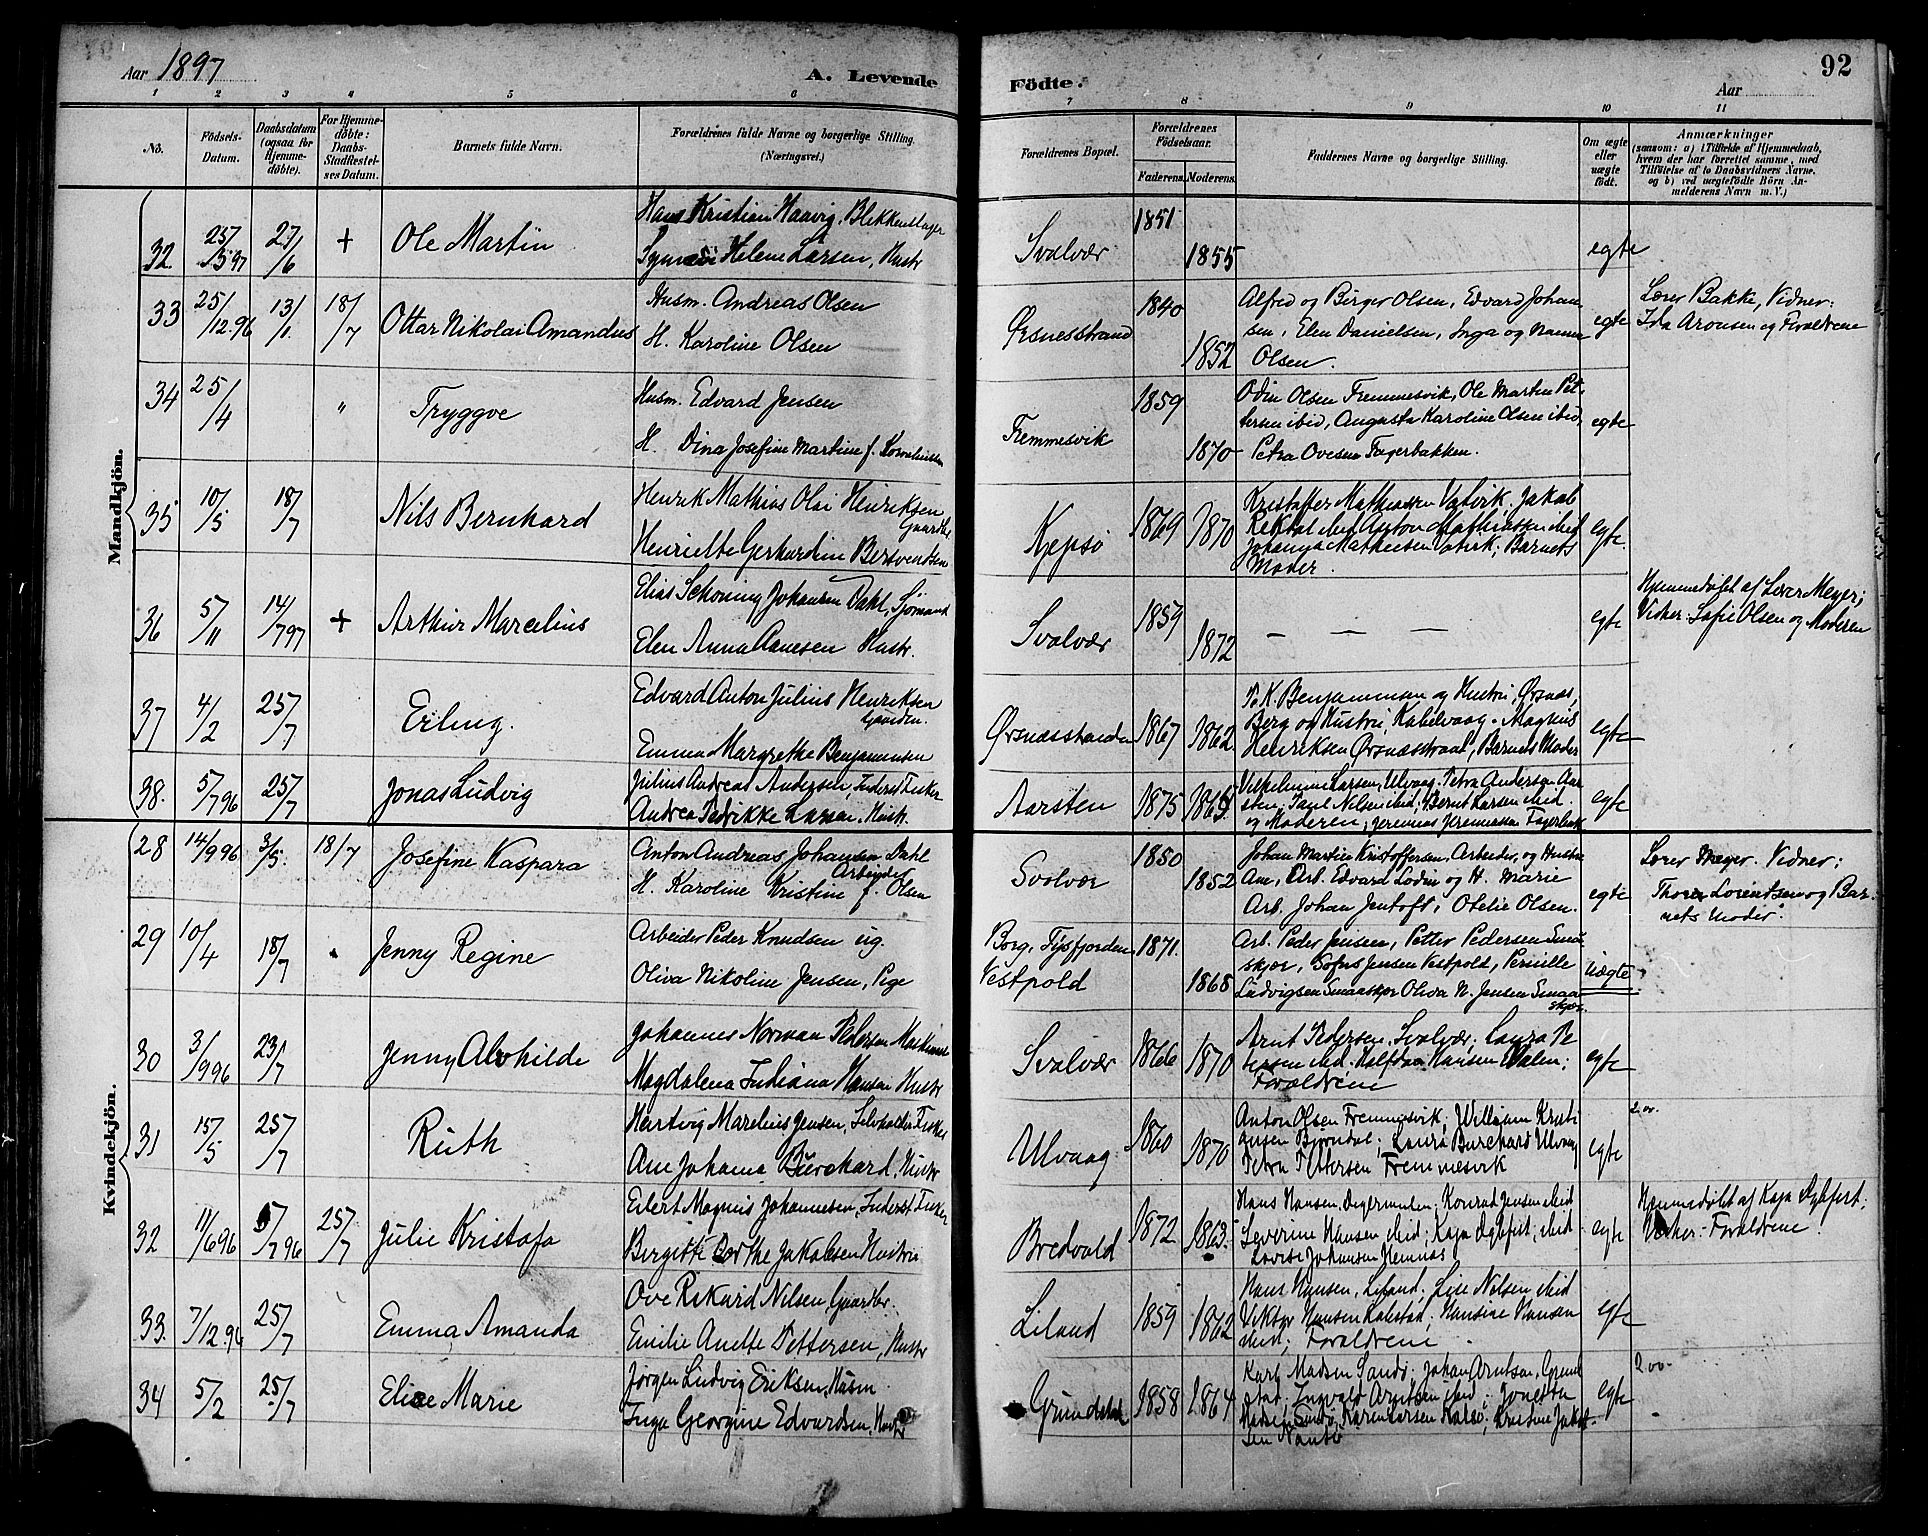 Aar 1897
A. Levende
Födte.
92
Aar
1 2 3 4 5 6 7 8 9 10 11
No.
Födsels-
Datum.
Daabsdatum
(ogsaa for
Hjemme-
döbte).
For Hjemme-
döbte:
Daabs-
Stadfæstel-
ses Datum.
Barnets fulde Navn.
Forældrenes fulde Navne og borgerlige Stilling.
(Næringsvei.)
Forældrenes Bopæl.
Forældrenes
Födselsaar.
Faderens. Moderens.
Faddernes Navne og borgerlige Stilling.
Om ægte
eller
uægte
födt.
Anmærkninger
(saasom: a) i Tilfælde af Hjemmedaab,
hvem der har forrettet samme, med
Tilföielse af to Daabsvidners Navne.
og b) ved uægtefödte Börn An-
melderens Navn m. V.)
Mandkjön.
32 25/5 97 27/6 + Ole Martin
Hans Kristian Haavig, Blikkenslager
Helene Larsen, Hustr
Svolvær 1851 1855 egte
33 25/12.96 13/1. 18/7 Ottar Nikolai Amandus
Husm. Andreas Olsen
H. Karoline Olsen
Ørsnesstrand 1840 1852
Alfred og Birger Olsen, Edvard Johan
sen, Elen Danielsen, Inga og Hanna
Olsen.
egte
Lærer Bakke, Vidner:
Ida Aronsen og Forældrene
34 25/4 " Tryggve
Husm. Edvard Jensen
H. Dina Josefine Martine f. Kornelius​sen
Fremmesvik 1859 1870
Odin Olsen Fremmesvik, Ole Martin Pet
tersen ibid, Augusta Karoline Olsen ibid,
Petra Ovesen Fagerbakken.
egte
35 10/5 18/7 Nils Bernhard
Henrik Mathias Olai Henriksen
Gaardbr
Henriette Gerhardine Berntsen
Kjepsö 1869 1870
Kristoffer Mathiassen Vatvik. Jakob
Rekdal ibid, Anton Mathiassen ibid
Johanna Mathiesen Vatvik; Barnets
Moder.
egte.
36 5/11 14/7 97 + Arthur Marcelius
Elias Schöning Johansen Dahl, Sjömand
Elen Anna Aanesen Hustr.
Svolvær 1859 1872 — — — egte
Hjemmedøbt af Lærer Meyer;
Vidner: Sofie Olsen og Moderen
37 4/2 25/7 Erling.
Edvard Anton Julius Henriksen
Emma Margrethe Benjaminsen
Ørsnæsstranden 1867 1862.
Benjaminsen og Hustru, Ørsnæs,
Berg og Hustru, Kabelvaag. Magnus
Henriksen Ørsnæsstrand, Barnets Moder
egte
38. 5/7 96 25/7 Jonas Ludvig
Julius Andreas Andersen, Inderst Fisker
Andrea Fedrikke Larsen, Hustr.
Aarsten 1875
Vilhelmine Larsen, Ulvaag. Petra Andersen Aar
sten, Paul Nilsen ibid, Bernt Larsen ibid.
og Moderen, Jeremias Jeremiassen Fagerbak
egte
Kvindekjön.
28 14/9 96 3/5. 18/7 Josefine Kaspara
Anton Andreas Johansen Dahl
Arbeider
H. Karoline Kristine f. Olsen
Svolvær 1850 1852
Johan Martin Kristoffersen, Arbeider, og Hustru
Ane, Arb. Edvard Lodin og H. Marie
Arb. Johan Jentoft, Otelie Olsen.
egte
Lærer Meyer. Vidner:
Thora Lorentsen og Bar-
nets Moder.
29 10/4 18/7 Jenny Regine
Arbeider Peder Knudsen ug.
Oliva Nikoline Jensen, Pige
Borg, Tysfjorden
Vestpold 1871. 1868
Arb. Peder Jensen, Petter Pedersen Smaa
skjær, Sofus Jensen Vestpold, Pernille
Ludvigsen Smaaskjær Oliva N. Jensen Smaa
skjær.
uægte
30 3/9 96 23/7 Jenny Alvhilde
Johannes Norman Pedersen Maskinist
Magdalena Indiana Hansen Hustr
Svolvær 1866 1870
Arnt Pedersen, Svolvær; Laura Pe
tersen ibid. Halfdan Hansen Valen;
Forældrene
egte
31 15/5 25/7 Ruth
Hartvig Marelius Jensen, Selveier Fisker
Ane Johanna Burchard, Hustr
Ulvaag 1860 1870
Anton Olsen Fremmesvik; William Kristi
ansen Bjørndal; Laura Burchard Ulvaag
Petra Pettersen Fremmesvik
egte
32 11/6 96 5/7 96 25/7 Julie Kristofa
Eilert Magnus Johannesen, Inderst Fisker
Birgitte Dorthe Jakobsen Hustru
Bredvold 1872 1863.
Hans Hansen, Digermulen; Konrad Jensen ibid
Severine Hansen ibid; Kaja Ogbfert, ibid
Lovise Johansen Hemnæs
egte
Hjemmedøbt af Kaja Ogbfert.
Vidner: Forældrene.
33. 7/12.96 25/7 Emma Amanda
Ove Rikard Nilsen, Gaardbr.
Emilie Anette Pettersen, Hustr
Liland 1859 1862
Hans Hansen, Liland; Lise Nilsen ibid
Viktor Hansen Kalstad; Hansine Hansen
ibid; Forældrene.
egte
34 5/2 25/7 Elise Marie
Jørgen Ludvig Eriksen, Husm.
Inga Georgine Edvardsen, Hustr
Grundstad 1858 1864
Karl Madsen Sandö; Johan Arntsen, Grund
stad, Ingvald Arntsen ibid; Jonetta
Madsen Sandö, Karen Larsen Kalsö; Kristine Jakob
sen
egte
2.00.